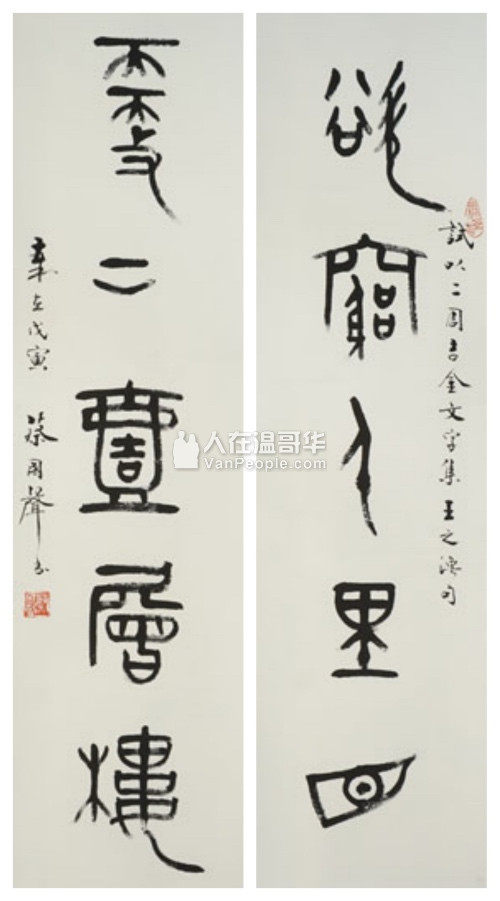 試以二周吉金文字集王之渙句
欲窮千里目
更上壹層樓
歲在戊寅 蔡國聲書
人在温哥华
VanPeople.com